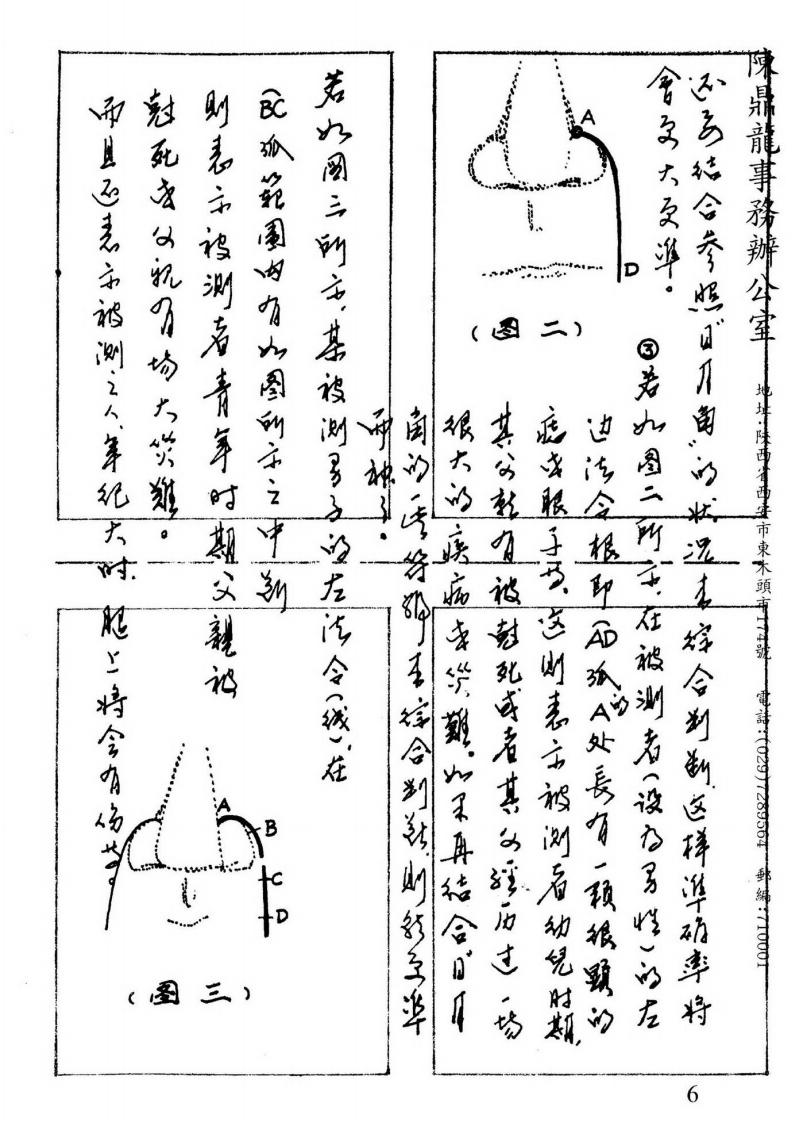 陳鼎龍事務辦公室
地址:陝西省西安市東木頭市174號 電話:(029)7289564 郵編:710001
还要结合参照“日月角”的状况来综合判断,这样準确率将
會更大更準。
③若如图二所示,在被测者(设为男性)的左
边法令根即(AD弧的A处長有一颗很顯的
痣或眼子等,这则表示被测者幼兒时期,
其父就有被尅死或者其父经历过一场
很大的疾病或災難。如果再结合日月
角的一些符號来综合判断,则能更準
而神了。
A
D
(图二)
若如图三所示,某被测男子的左法令(线),在
(BC弧範圍内有如图所示之中断
则表示被测者青年时期父親被
尅死或父親有场大災難。
而且还表示被测之人,年纪大时,腿上将会有伤等。
A
B
C
D
(图三)
6